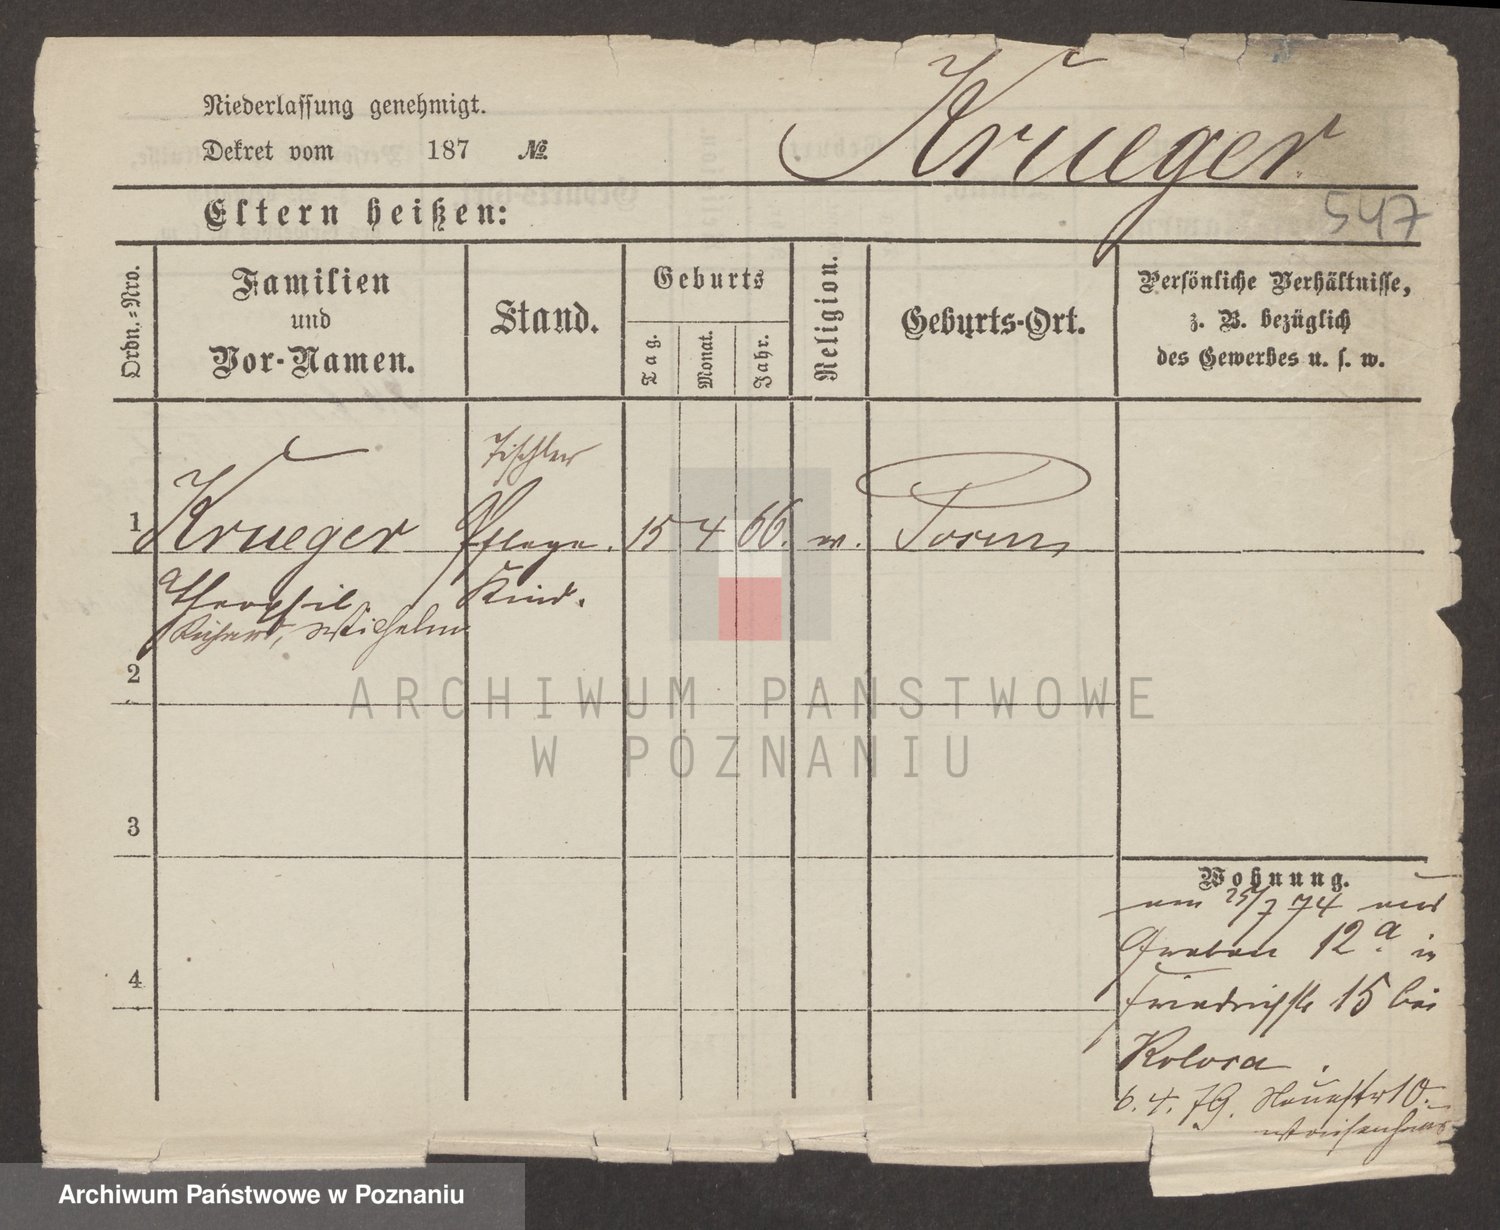 Krueger
Niederlassung genehmigt.
Dekret vom 187 №
Eltern heißen:
547
Ordn.-Nro.
Familien
und
Vor-Namen.
Stand.
Geburts
Tag.
Monat.
Jahr.
Religion.
Geburts-Ort.
Persönliche Verhältnisse,
z. B. bezüglich
des Gewerbes u. s. w.
Tischler
1 Krueger Pflege. 15 4 66. Posen
Theophil Kind.
Richard, Wilhelm
2
ARCHIWUM PAŃSTWOWE
W POZNANIU
3
4
Wohnung.
von 25/7 74 aus
Graben 12a in
Friedrichstr 15 bei
6.4.79. Neuestr 10.
Waisenhaus
Archiwum Państwowe w Poznaniu